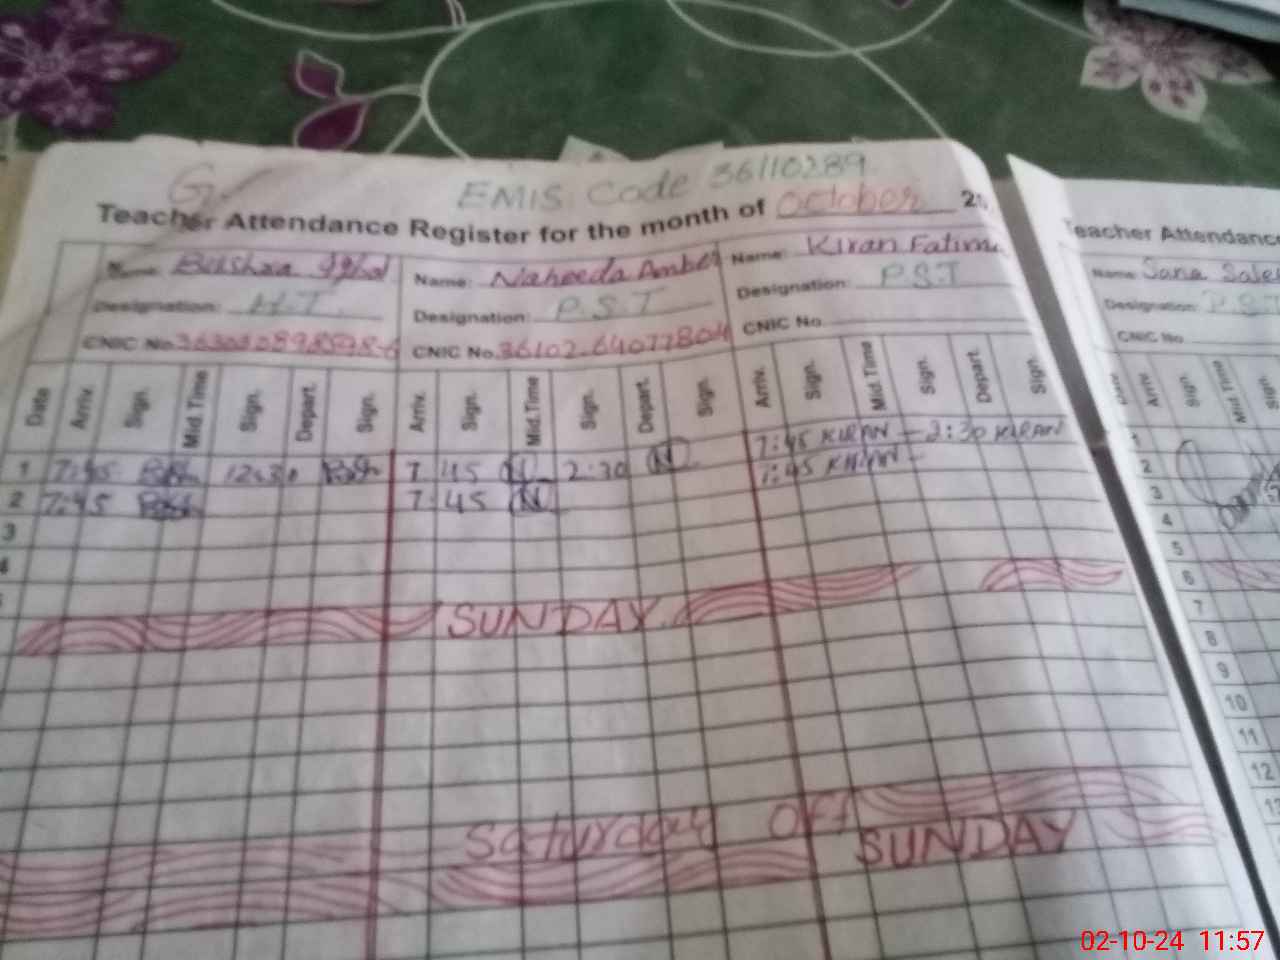 EMIS: Code 36110289
Teacher Attendance Register for the month of October 2
Name: Bushra Iqbal
Designation: H.T.
CNIC No.
Name: Naheeda Amber
Designation: P.S.T
CNIC No. 36102-6407780
Name: Kiran Fatima
Designation: P.S.T
CNIC No.
Date Arriv. Sign. Mid.Time Sign. Depart. Sign. Arriv. Sign. Mid.Time Sign. Depart. Sign. Arriv. Sign. Mid.Time Sign. Depart. Sign.
1 7:45 12:30 7 45 N 2:30 N 7:45 KIRAN - 2:30 KIRAN
2 7:45 7:45 N 7:45 KIRAN -
3
4
SUNDAY
Saturday Off
SUNDAY
Teacher Attendance
Name: Sana
Designation: P.S.T
CNIC No.
Date Arriv. Sign. Mid.Time Sign.
1
2
3
4
5
6
7
8
9
10
11
12
02-10-24 11:57